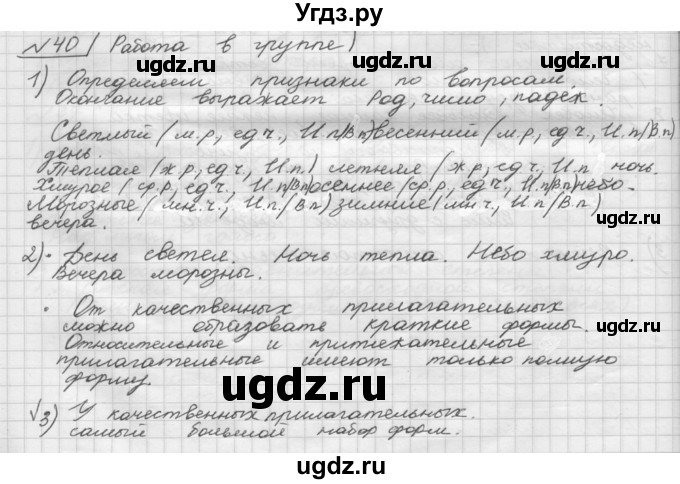 Угдз.ру
№40 (Работа в группе)
1) Определяем признаки по вопросам.
Окончание выражает род, число, падеж.
Светлый (м.р, ед ч., И.п/В.п) весенний (м.р, ед ч., И.п/В.п)
день.
Теплая (ж р, ед ч., И.п.) летняя (ж р, ед ч., И.п. ночь.
Хмурое (ср.р, ед ч., И.п/В.п) осеннее (ср.р, ед ч., И.п/В.п) небо.
Морозные (мн.ч., И.п/В.п) зимние (мн ч, И.п/В.п)
вечера.
2) • День светел. Ночь тепла. Небо хмуро.
Вечера морозны.
• От качественных прилагательных
можно образовать краткие формы.
Относительные и притяжательные
прилагательные имеют только полную
форму.
√3) У качественных прилагательных.
самый большой набор форм.
ugdz.ru
ugdz.ru
ugdz.ru
ugdz.ru
ugdz.ru
ugdz.ru
ugdz.ru